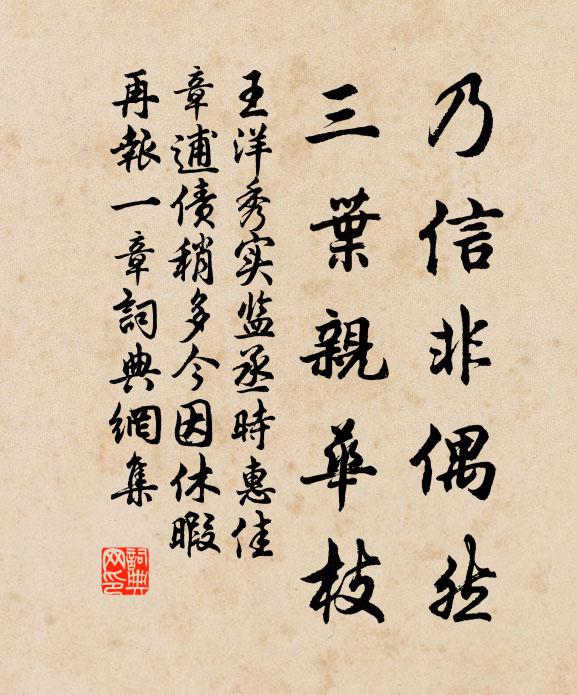 乃信非偶然
三葉親華枝
王洋秀实监丞時惠佳
章逋债稍多今因休暇
再報一章詞典網集
詞典网印